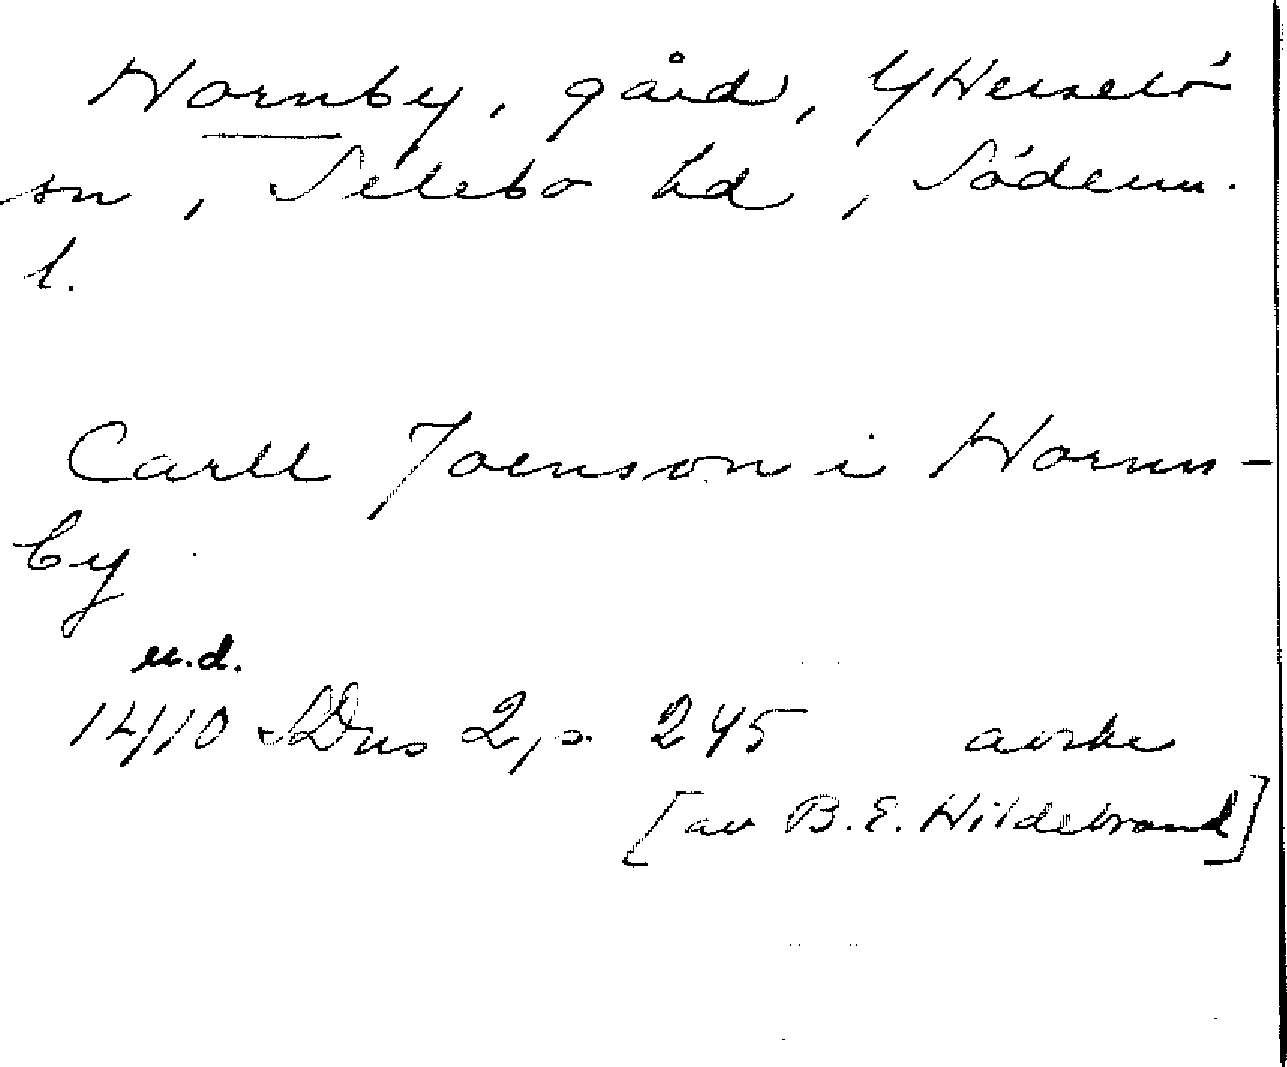 Hornby, gård, YHerselö
sn, Selebo hd, Söderm.
l.
Carll Joenson i Hornn-
by
u.d.
1410 SDns 2, s. 245 avskr
[av B.E. Hildebrand]